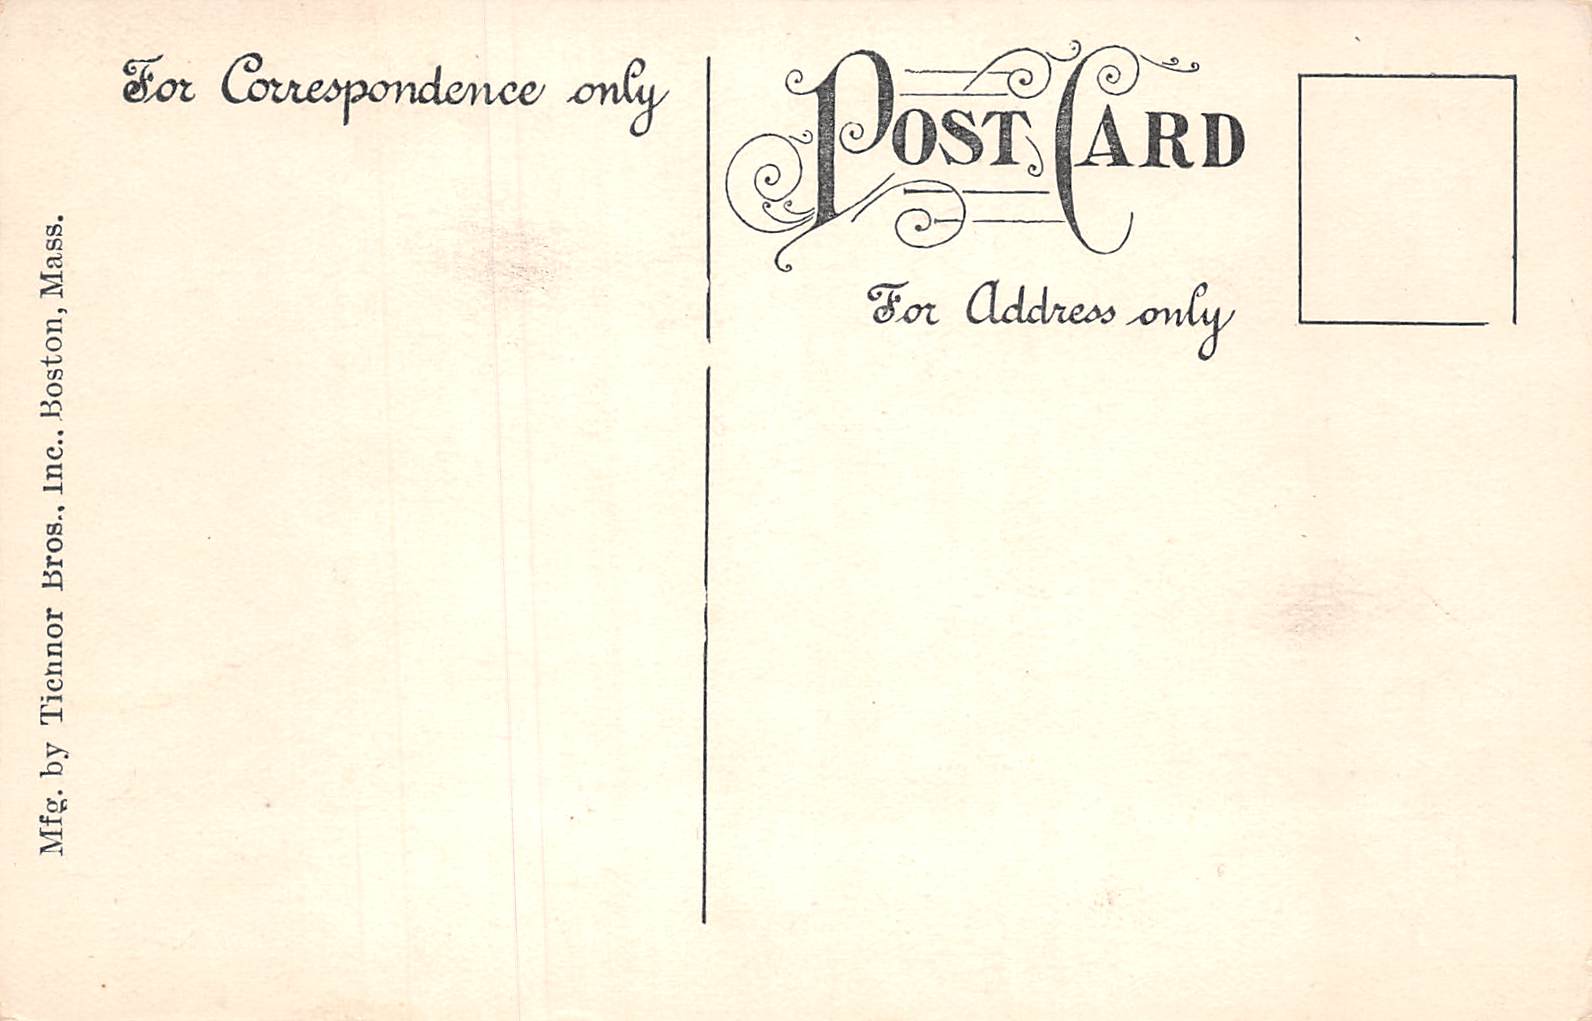 For Correspondence only
POST CARD
For Address only
Mfg. by Tichnor Bros., Inc., Boston, Mass.